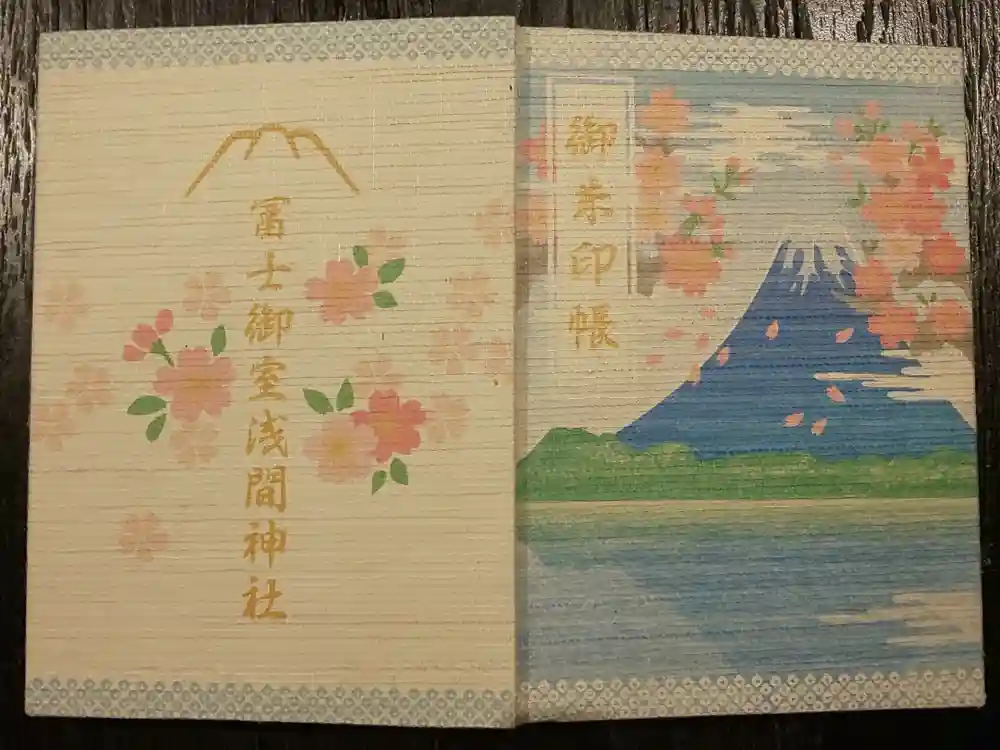 御朱印帳
冨士御室浅間神社